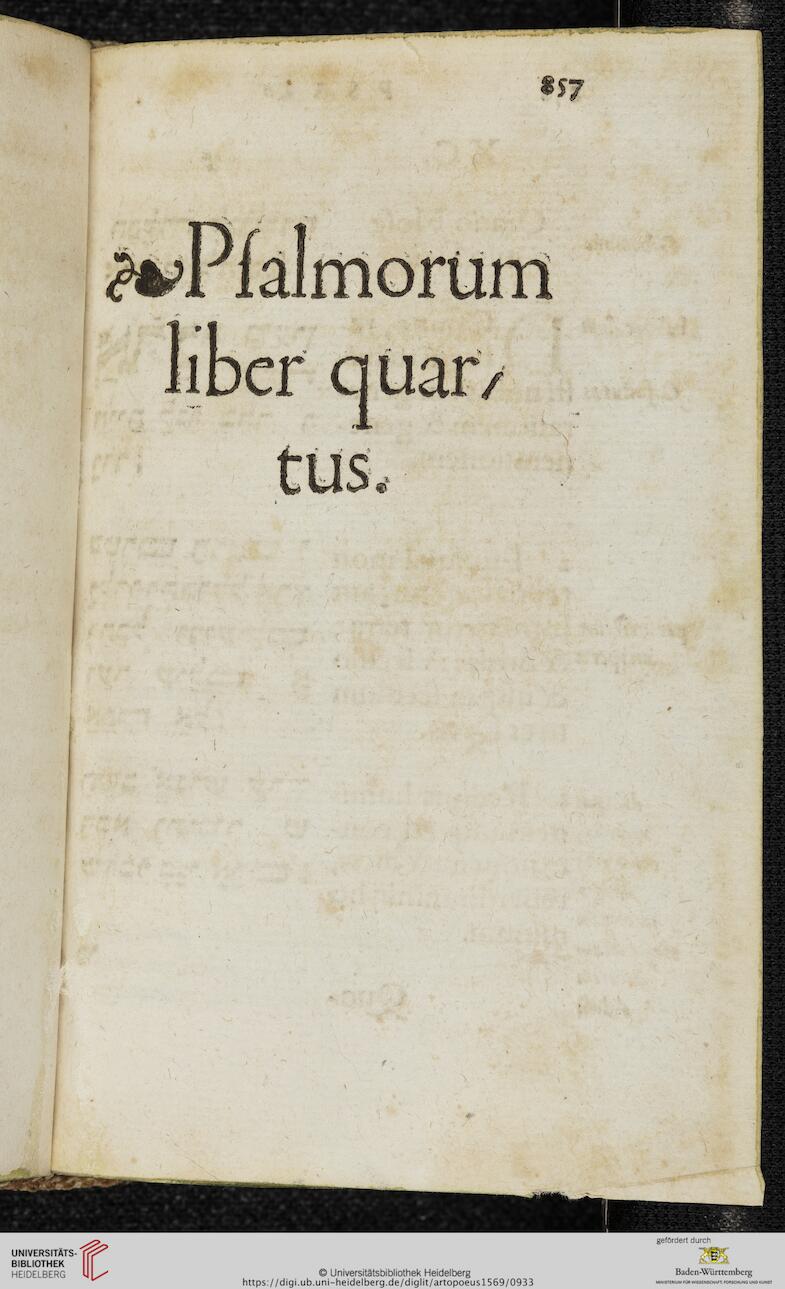 857
❧Pſalmorum
liber quar⸗
tus.
UNIVERSITÄTS-
BIBLIOTHEK
HEIDELBERG
© Universitätsbibliothek Heidelberg
https://digi.ub.uni-heidelberg.de/diglit/artopoeus1569/0933
gefördert durch
Baden-Württemberg
MINISTERIUM FÜR WISSENSCHAFT, FORSCHUNG UND KUNST